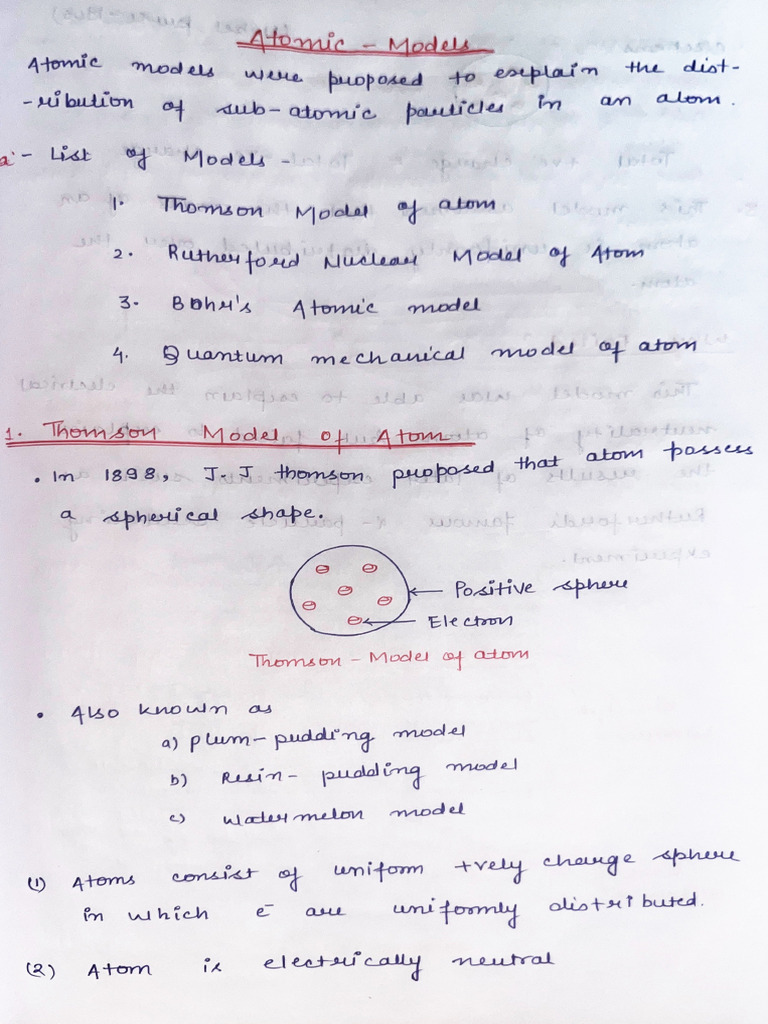 Atomic - Models
Atomic models were proposed to explain the dist-
-ribution of sub-atomic particles in an atom.
a - List of Models -
1. Thomson Model of atom
2. Rutherford Nuclear Model of Atom
3. Bohr's Atomic model
4. Quantum mechanical model of atom
1. Thomson Model of Atom
• In 1898, J.J thomson proposed that atom possess
a spherical shape.
Positive sphere
Electron
Thomson - Model of atom
• Also known as
a) Plum-pudding model
b) Resin- pudding model
c) watermelon model
(1) Atoms consist of uniform +vely charge sphere
in which e⁻ are uniformly distributed.
(2) Atom is electrically neutral